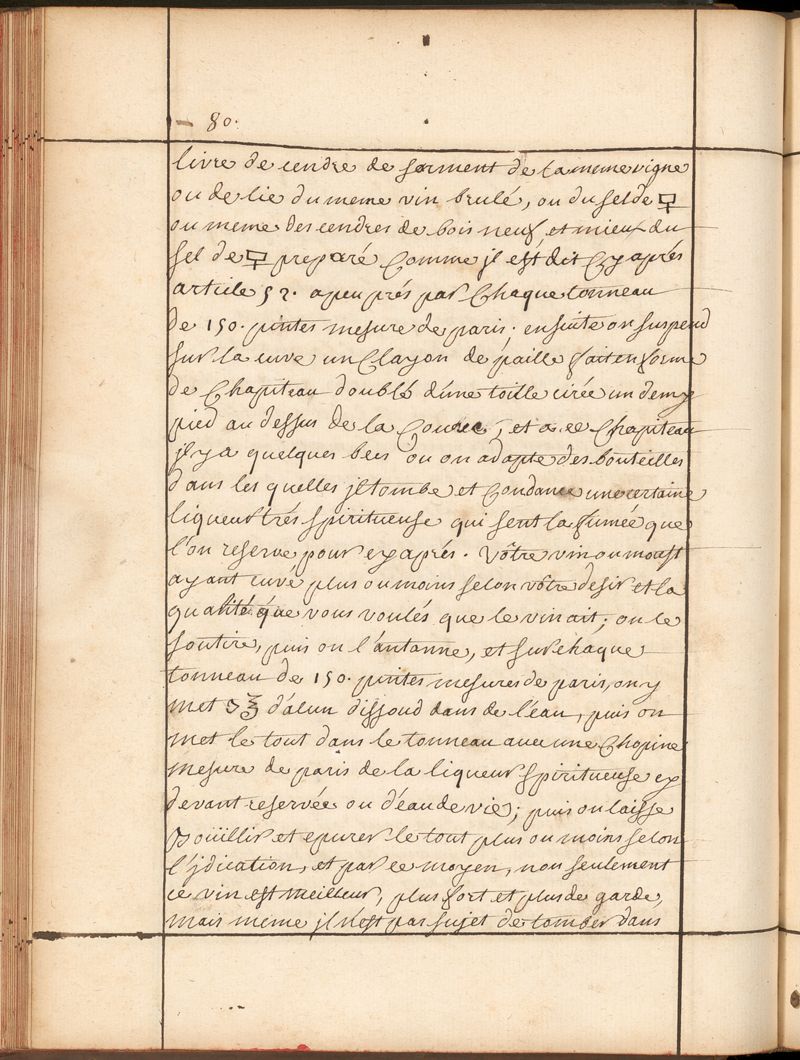 80.
livre de cendre de sarment de la meme vigne
ou de lie du meme vin brulé, ou du sel de 🜿
ou meme des cendres de bois neuf, et mieux du
sel de 🜿 preparé Comme jl est dit Cy aprés
article 52. apeu prés par Chaque tonneau
de 150. pintes mesure de paris. ensuite on suspend
sur la cuve un Clayon de paille fait en forme
de Chapiteau doublé d'une toille cirée un demy
pied au dessus de la Couvée, et a ce Chapiteau
jl y a quelques becs ou on adapte des bouteilles
dans les quelles jl tombe et Condance une certaine
liqueur trés spiritueuse qui sent la fumée que
l'on reserve pour cy aprés. Vôtre vin ou moust
ayant cuvé plus ou moins selon vôtre desir et la
qualité que vous voulés que le vin ait; on le
soutire, puis on l'antonne, et sur chaque
tonneau de 150. pintes mesures de paris, on y
met ℥ d'alun dissoud dans de l'eau, puis on
met le tout dans le tonneau avec une Chopine
mesure de paris de la liqueur spiritueuse cy
devant reservée ou d'eau de vie; puis on laisse
Boüillir et epurer le tout plus ou moins selon
l'jdication, et par ce moyen, non seulement
ce vin est meilleur, plus fort et plus de garde,
mais meme jl n'est pas sujet de tomber dans